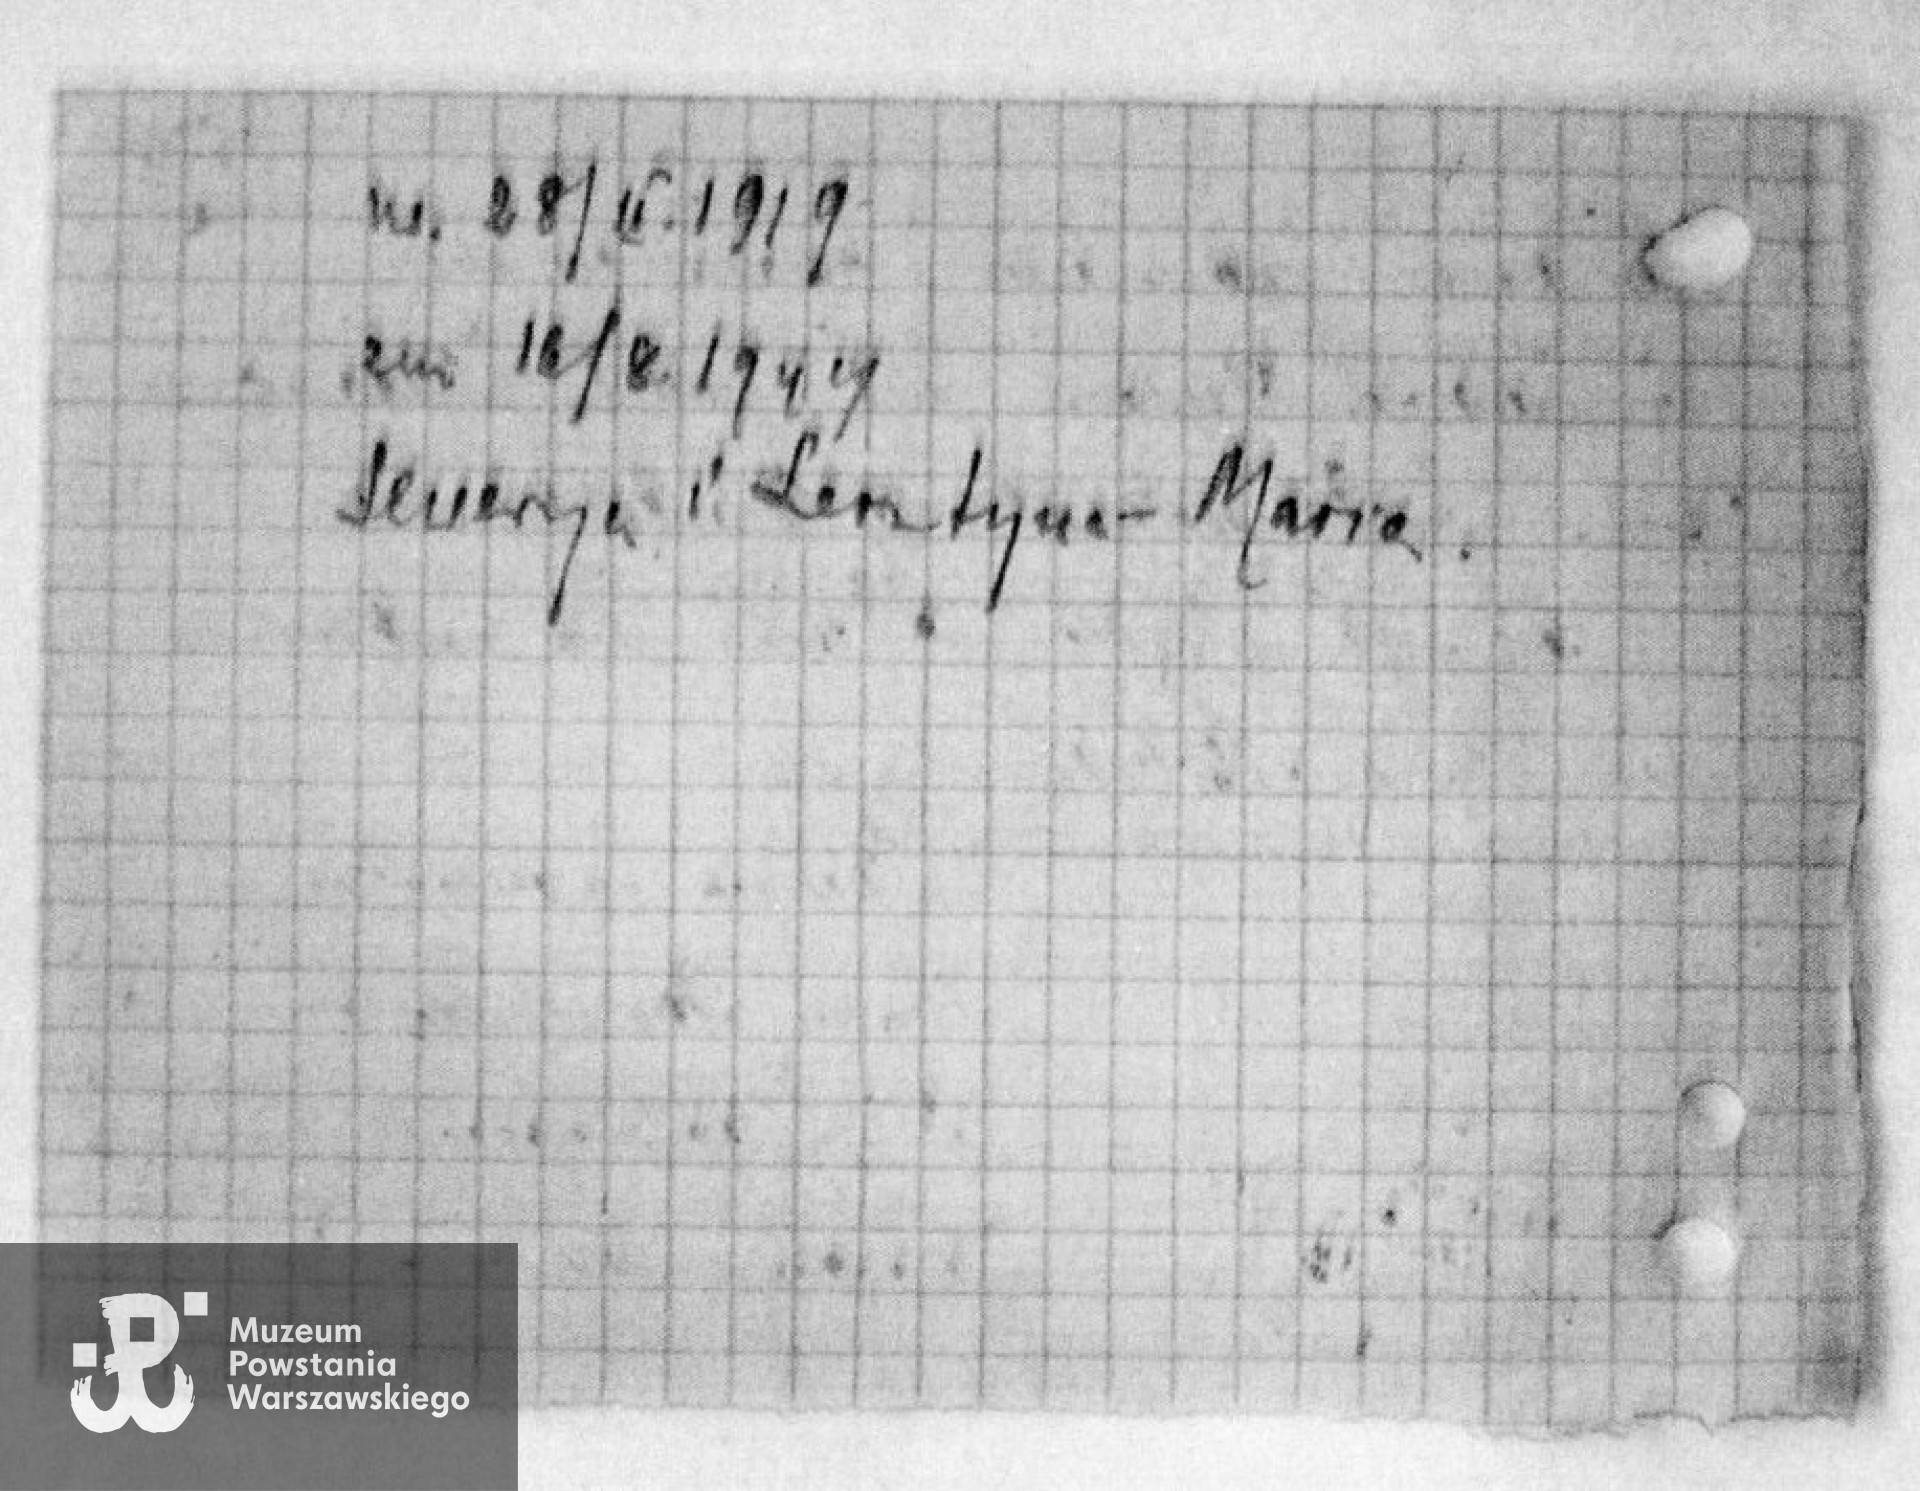 ur. 28/IV.1919
zm 16/8.1944
Seweryn i Leontyna-Maria.
Muzeum
Powstania
Warszawskiego